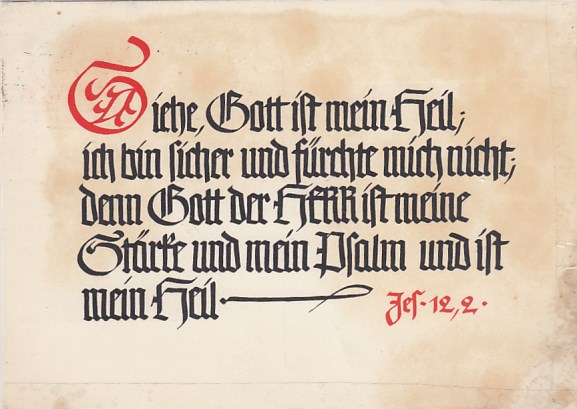 Siehe, Gott ist mein Heil;
ich bin sicher und fürchte mich nicht;
denn Gott der HERR ist meine
Stärke und mein Psalm und ist
mein Heil.
Jes. 12,2.